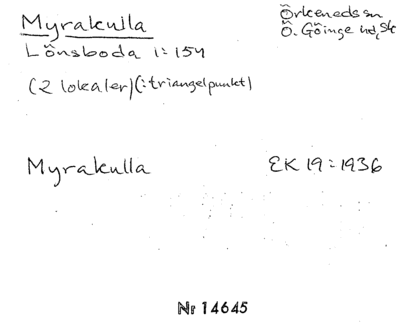 Myrakulla
Örkeneds sn
Lönsboda 1:154
Ö. Göinge hd, Sk
(2 lokaler)(:triangelpunkt)
Myrakulla EK 19:1936
Nr 14645